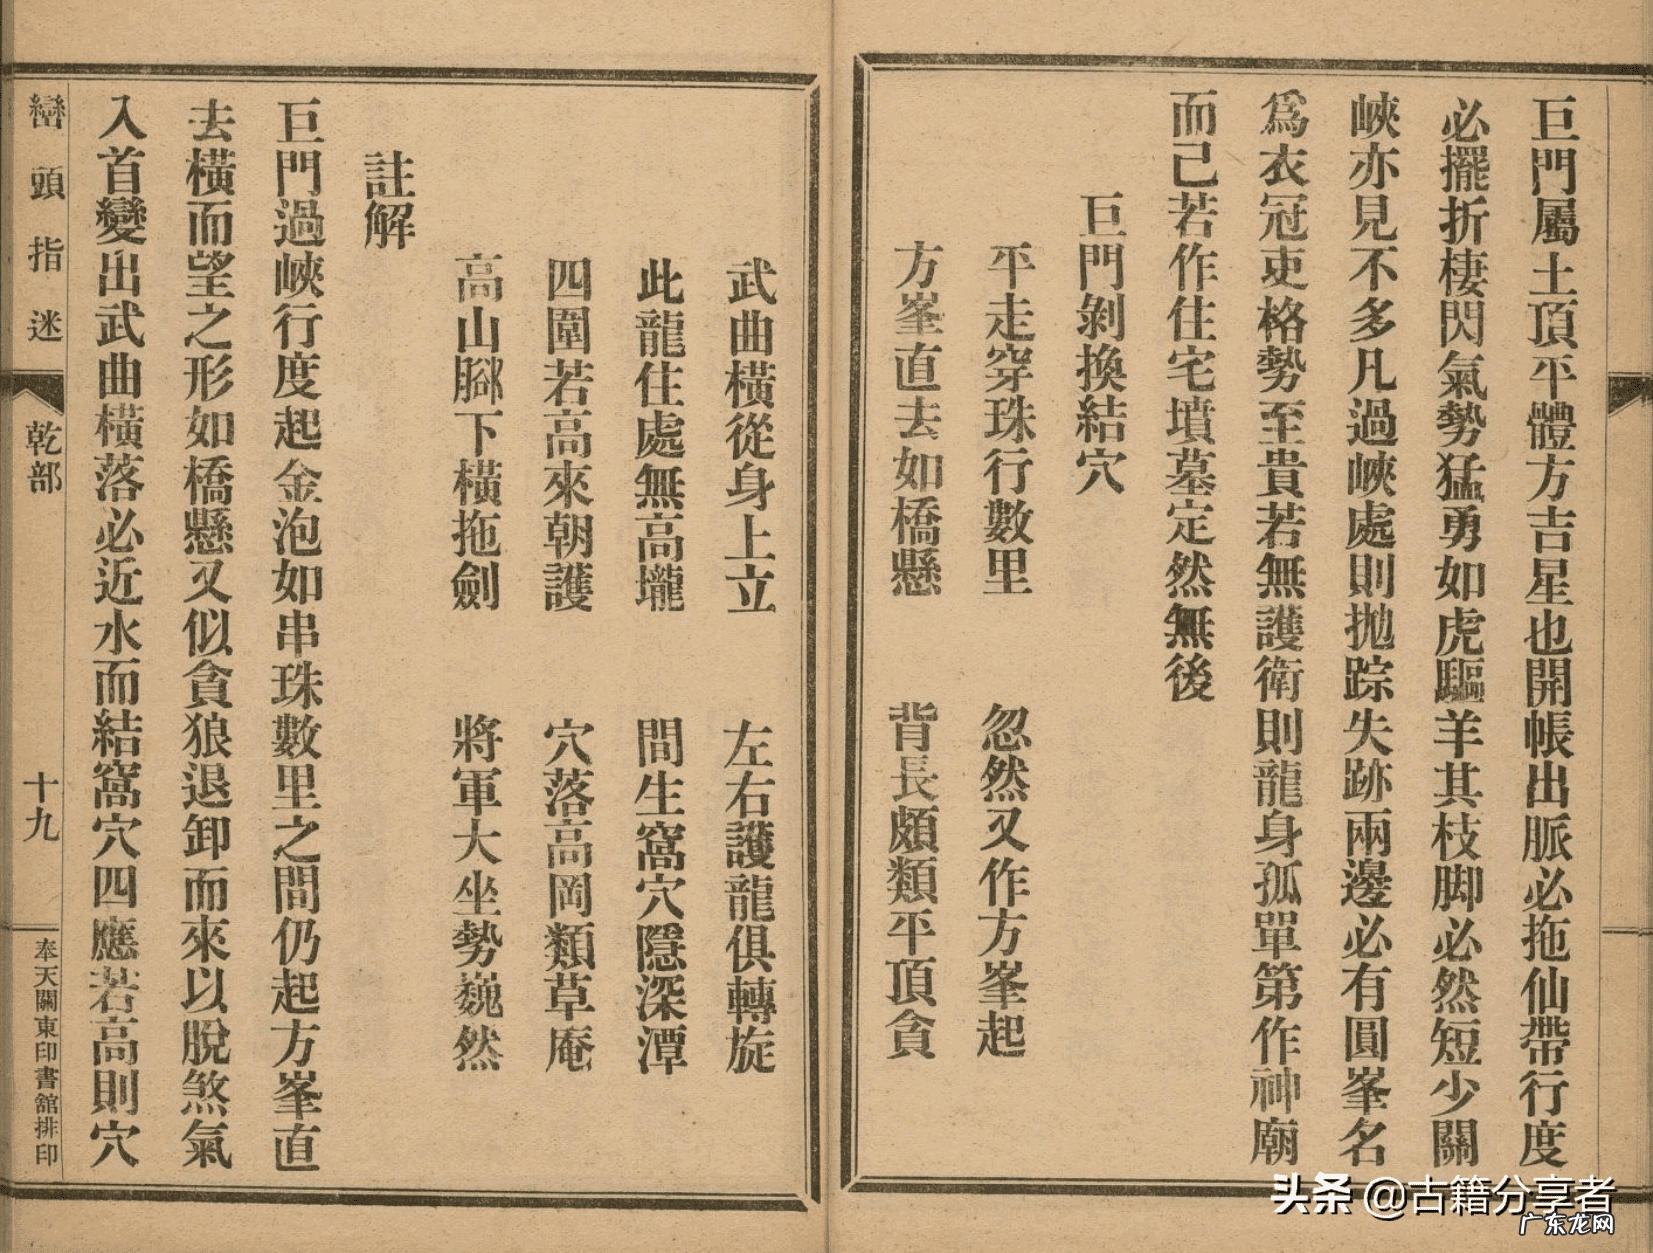 巨門屬土頂平體方吉星也開帳出脈必拖仙帶行度
必擺折棲閃氣勢猛勇如虎驅羊其枝脚必然短少關
峽亦見不多凡過峽處則拋踪失跡兩邊必有圓峯名
爲衣冠吏格勢至貴若無護衛則龍身孤單第作神廟
而已若作住宅墳墓定然無後
巨門剝換結穴
平走穿珠行數里 忽然又作方峯起
方峯直去如橋懸 背長頗類平頂貪
武曲橫從身上立 左右護龍俱轉旋
此龍住處無高壠 間生窩穴隱深潭
四圍若高來朝護 穴落高岡類草庵
高山腳下橫拖劍 將軍大坐勢巍然
註解
巨門過峽行度起金泡如串珠數里之間仍起方峯直
去橫而望之形如橋懸又似貪狼退卸而來以脫煞氣
入首變出武曲橫落必近水而結窩穴四應若高則穴
巒頭指迷 乾部 十九 奉天關東印書舘排印
头条 @古籍分享者
广东龙网